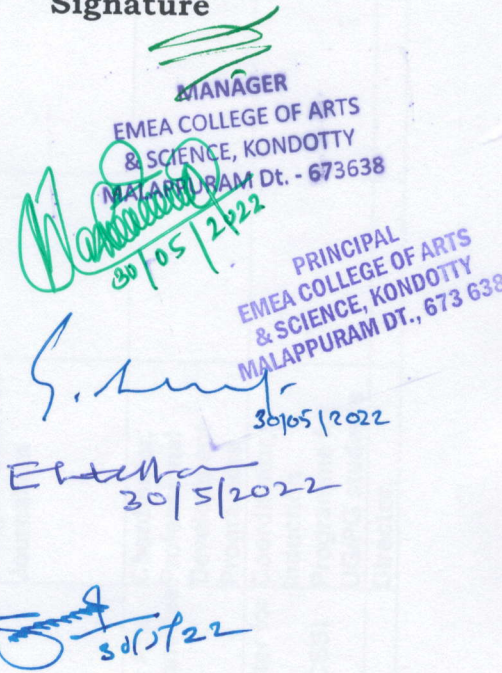 Signature
MANAGER
EMEA COLLEGE OF ARTS
& SCIENCE, KONDOTTY
MALAPPURAM Dt. - 673638
30/05/2022
PRINCIPAL
EMEA COLLEGE OF ARTS
& SCIENCE, KONDOTTY
MALAPPURAM DT., 673 638
30/05/2022
30/5/2022